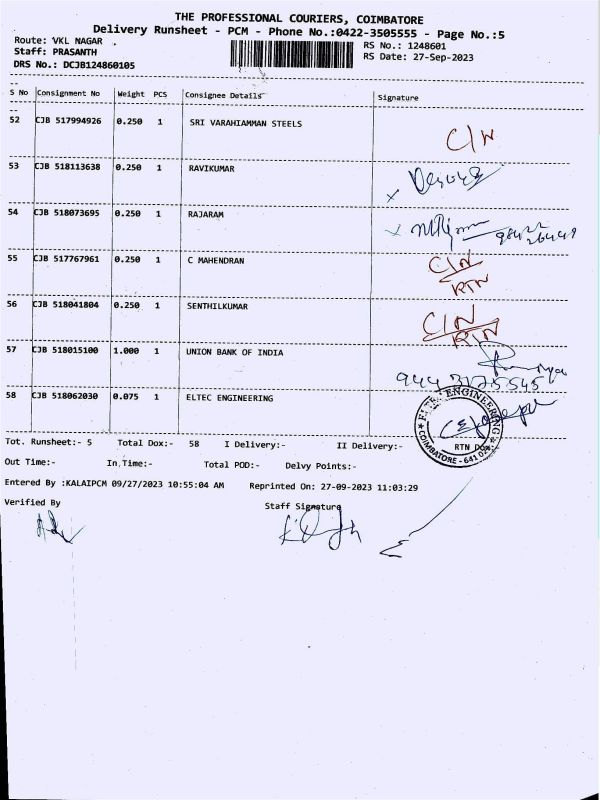 THE PROFESSIONAL COURIERS, COIMBATORE
Delivery Runsheet - PCM - Phone No.:0422-3505555 - Page No.:5
Route: VKL NAGAR RS No.: 1248601
Staff: PRASANTH RS Date: 27-Sep-2023
DRS No.: DCJB124860105
S No Consignment No Weight PCS Consignee Details Signature
52 CJB 517994926 0.250 1 SRI VARAHIAMMAN STEELS C/N
53 CJB 518113638 0.250 1 RAVIKUMAR
54 CJB 518073695 0.250 1 RAJARAM
55 CJB 517767961 0.250 1 C MAHENDRAN C/N
RTN
56 CJB 518041804 0.250 1 SENTHILKUMAR C/N
RTN
57 CJB 518015100 1.000 1 UNION BANK OF INDIA
58 CJB 518062030 0.075 1 ELTEC ENGINEERING
ELTEC ENGINEERING
COIMBATORE - 641 02
Tot. Runsheet:- 5 Total Dox:- 58 I Delivery:- II Delivery:- RTN Dox:-
Out Time:- In Time:- Total POD:- Delvy Points:-
Entered By :KALAIPCM 09/27/2023 10:55:04 AM Reprinted On: 27-09-2023 11:03:29
Verified By Staff Signature